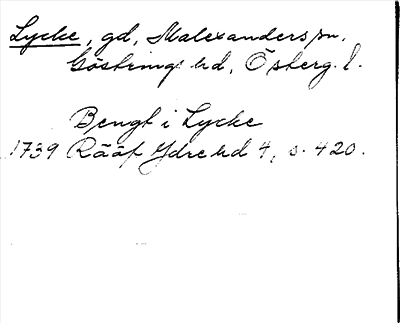 Lycke, gd, Malexanders sn.
Göstrings hd, Österg. l.
Bengt i Lycke
1739 Rääf Ydre hd 4, s. 420.